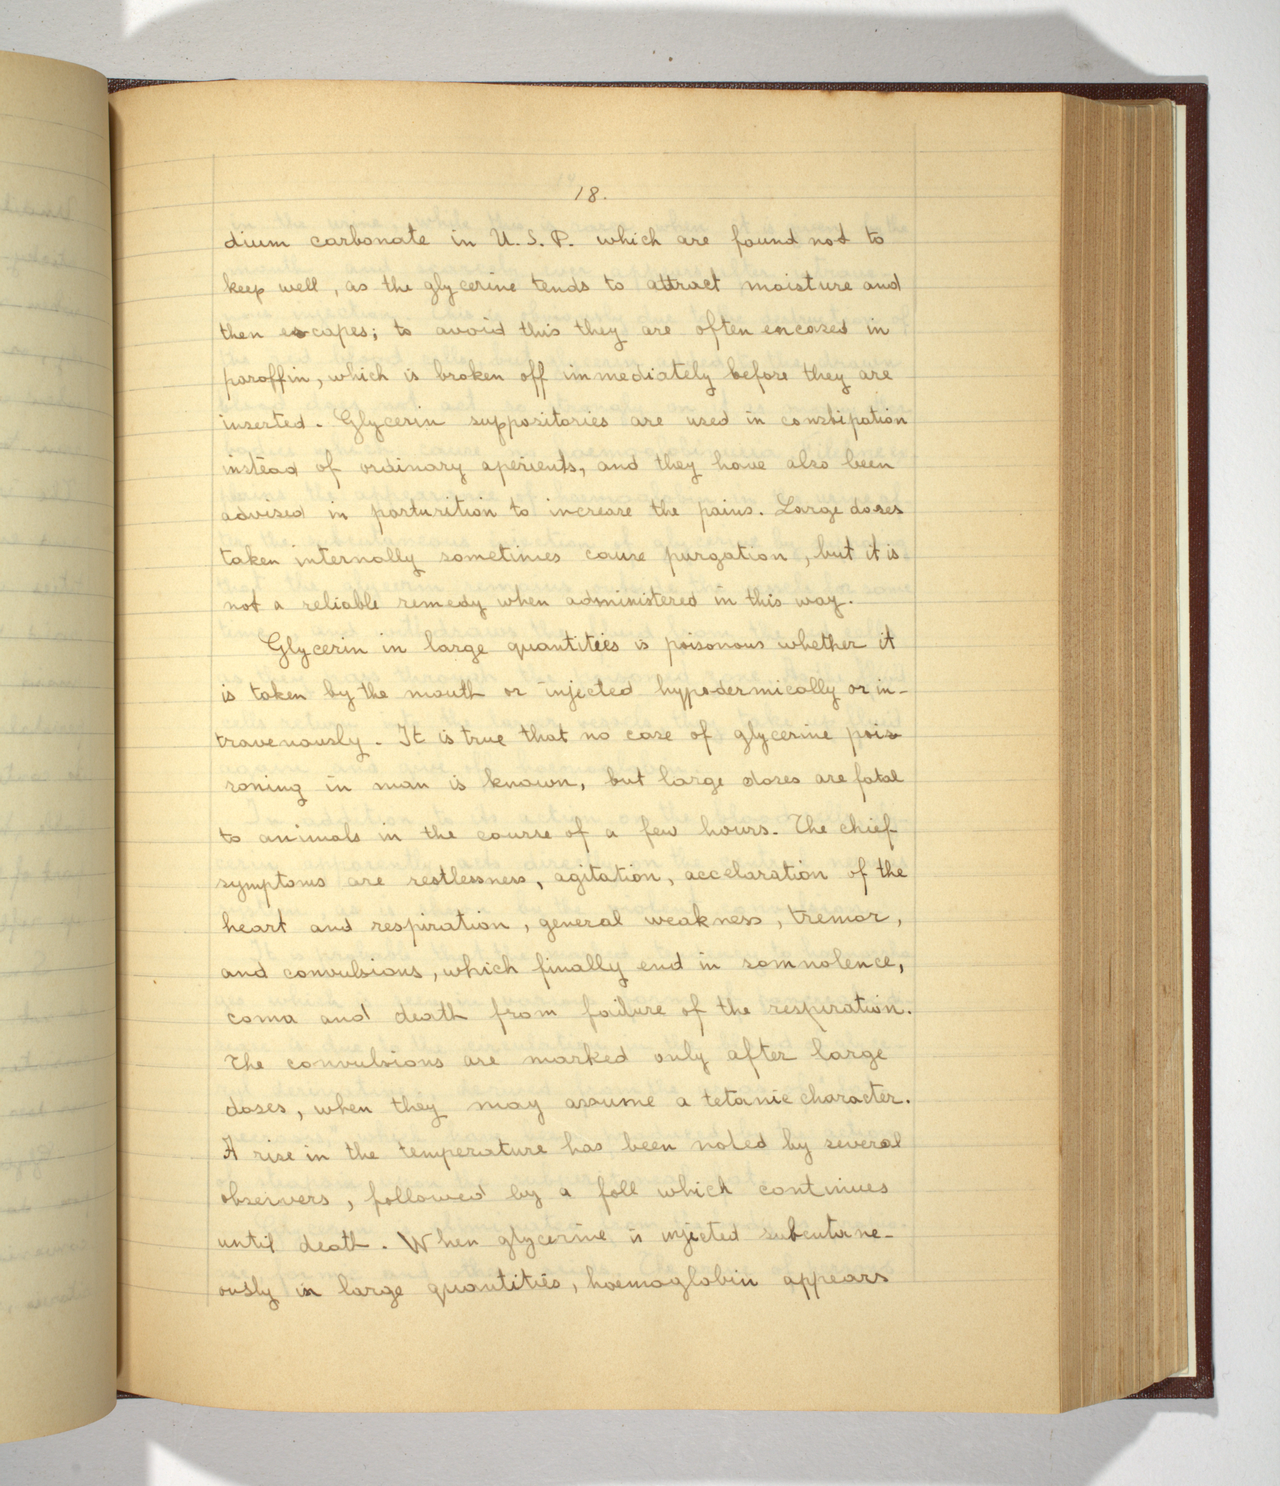 18.
dium carbonate in U.S.P. which are found not to
keep well, as the glycerine tends to attract moisture and
then escapes; to avoid this they are often encased in
paroffin, which is broken off immediately before they are
inserted. Glycerin suppositories are used in constipation
instead of ordinary aperients, and they have also been
advised in parturition to increase the pains. Large doses
taken internally sometimes cause purgation, but it is
not a reliable remedy when administered in this way.
Glycerin in large quantities is poisonous whether it
is taken by the mouth or injected hypodermically or in-
travenously. It is true that no case of glycerine pois
soning in man is known, but large doses are fatal
to animals in the course of a few hours. The chief
symptoms are restlessness, agitation, accelaration of the
heart and respiration, general weakness, tremor,
and convulsions, which finally end in somnolence,
coma and death from failure of the respiration.
The convulsions are marked only after large
doses, when they may assume a tetanic character.
A rise in the temperature has been noted by several
observers, followed by a fall which continues
until death. When glycerine is injected subcutane-
ously in large quantities, haemoglobin appears